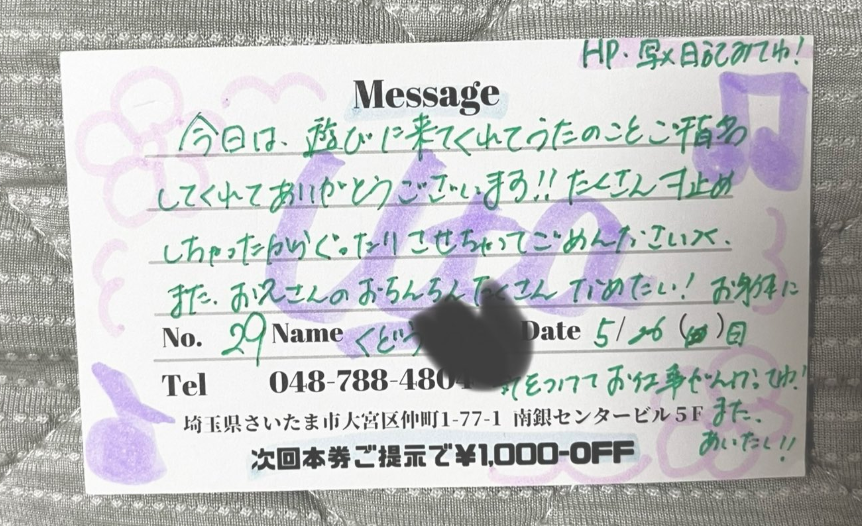 HP・写メ日記みてね!
Message
今日は、遊びに来てくれてうたのことご指名
してくれてありがとうございます!! たくさん寸止め
しちゃったからぐったりさせちゃってごめんなさい><、
また、お兄さんのおちんちんたくさんなめたい! お身体に
No. 29 Name くどう Date 5/26 ( )日
Tel 048-788-4804 気をつけてお仕事がんばってね!
埼玉県さいたま市大宮区仲町1-77-1 南銀センタービル5F また、
あいたい!!
次回本券ご提示で¥1,000-OFF
Uta